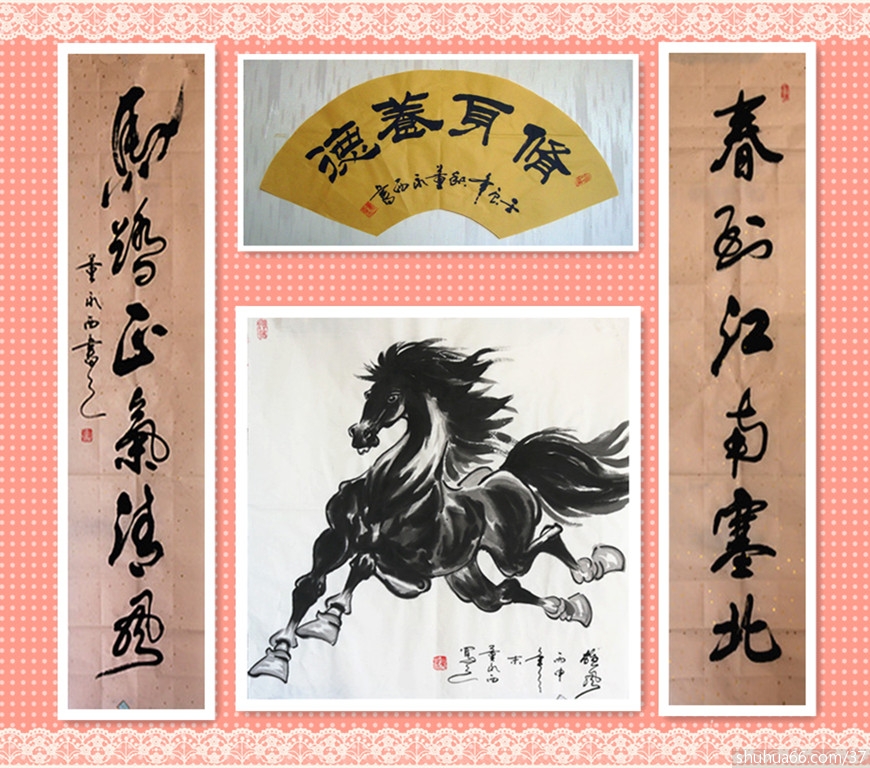 春到江南塞北
馬踏正氣清風
董永西書之
脩身養德
董永西書
風
丙申
年
董永西
寫之
shuhua66.com/37